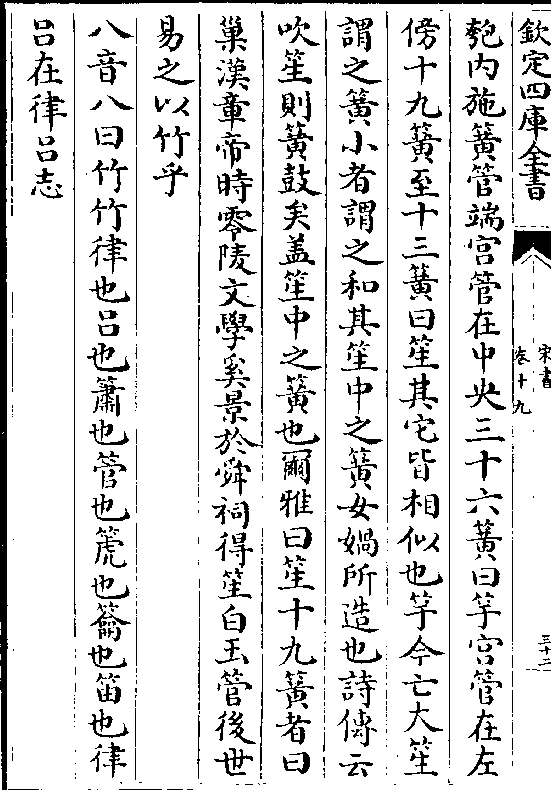 欽定四庫全書
宋書
卷十九
三十二
匏内施簧管端宫管在中央三十六簧曰竽宫管在左
傍十九簧至十三簧曰笙其它皆相似也竽今亡大笙
謂之簧小者謂之和其笙中之簧女媧所造也詩傳云
吹笙則簧鼓矣盖笙中之簧也爾雅曰笙十九簧者曰
巢漢章帝時零陵文學奚景於舜祠得笙白玉管後世
易之以竹乎
八音八曰竹竹律也吕也簫也管也篪也籥也笛也律
吕在律吕志